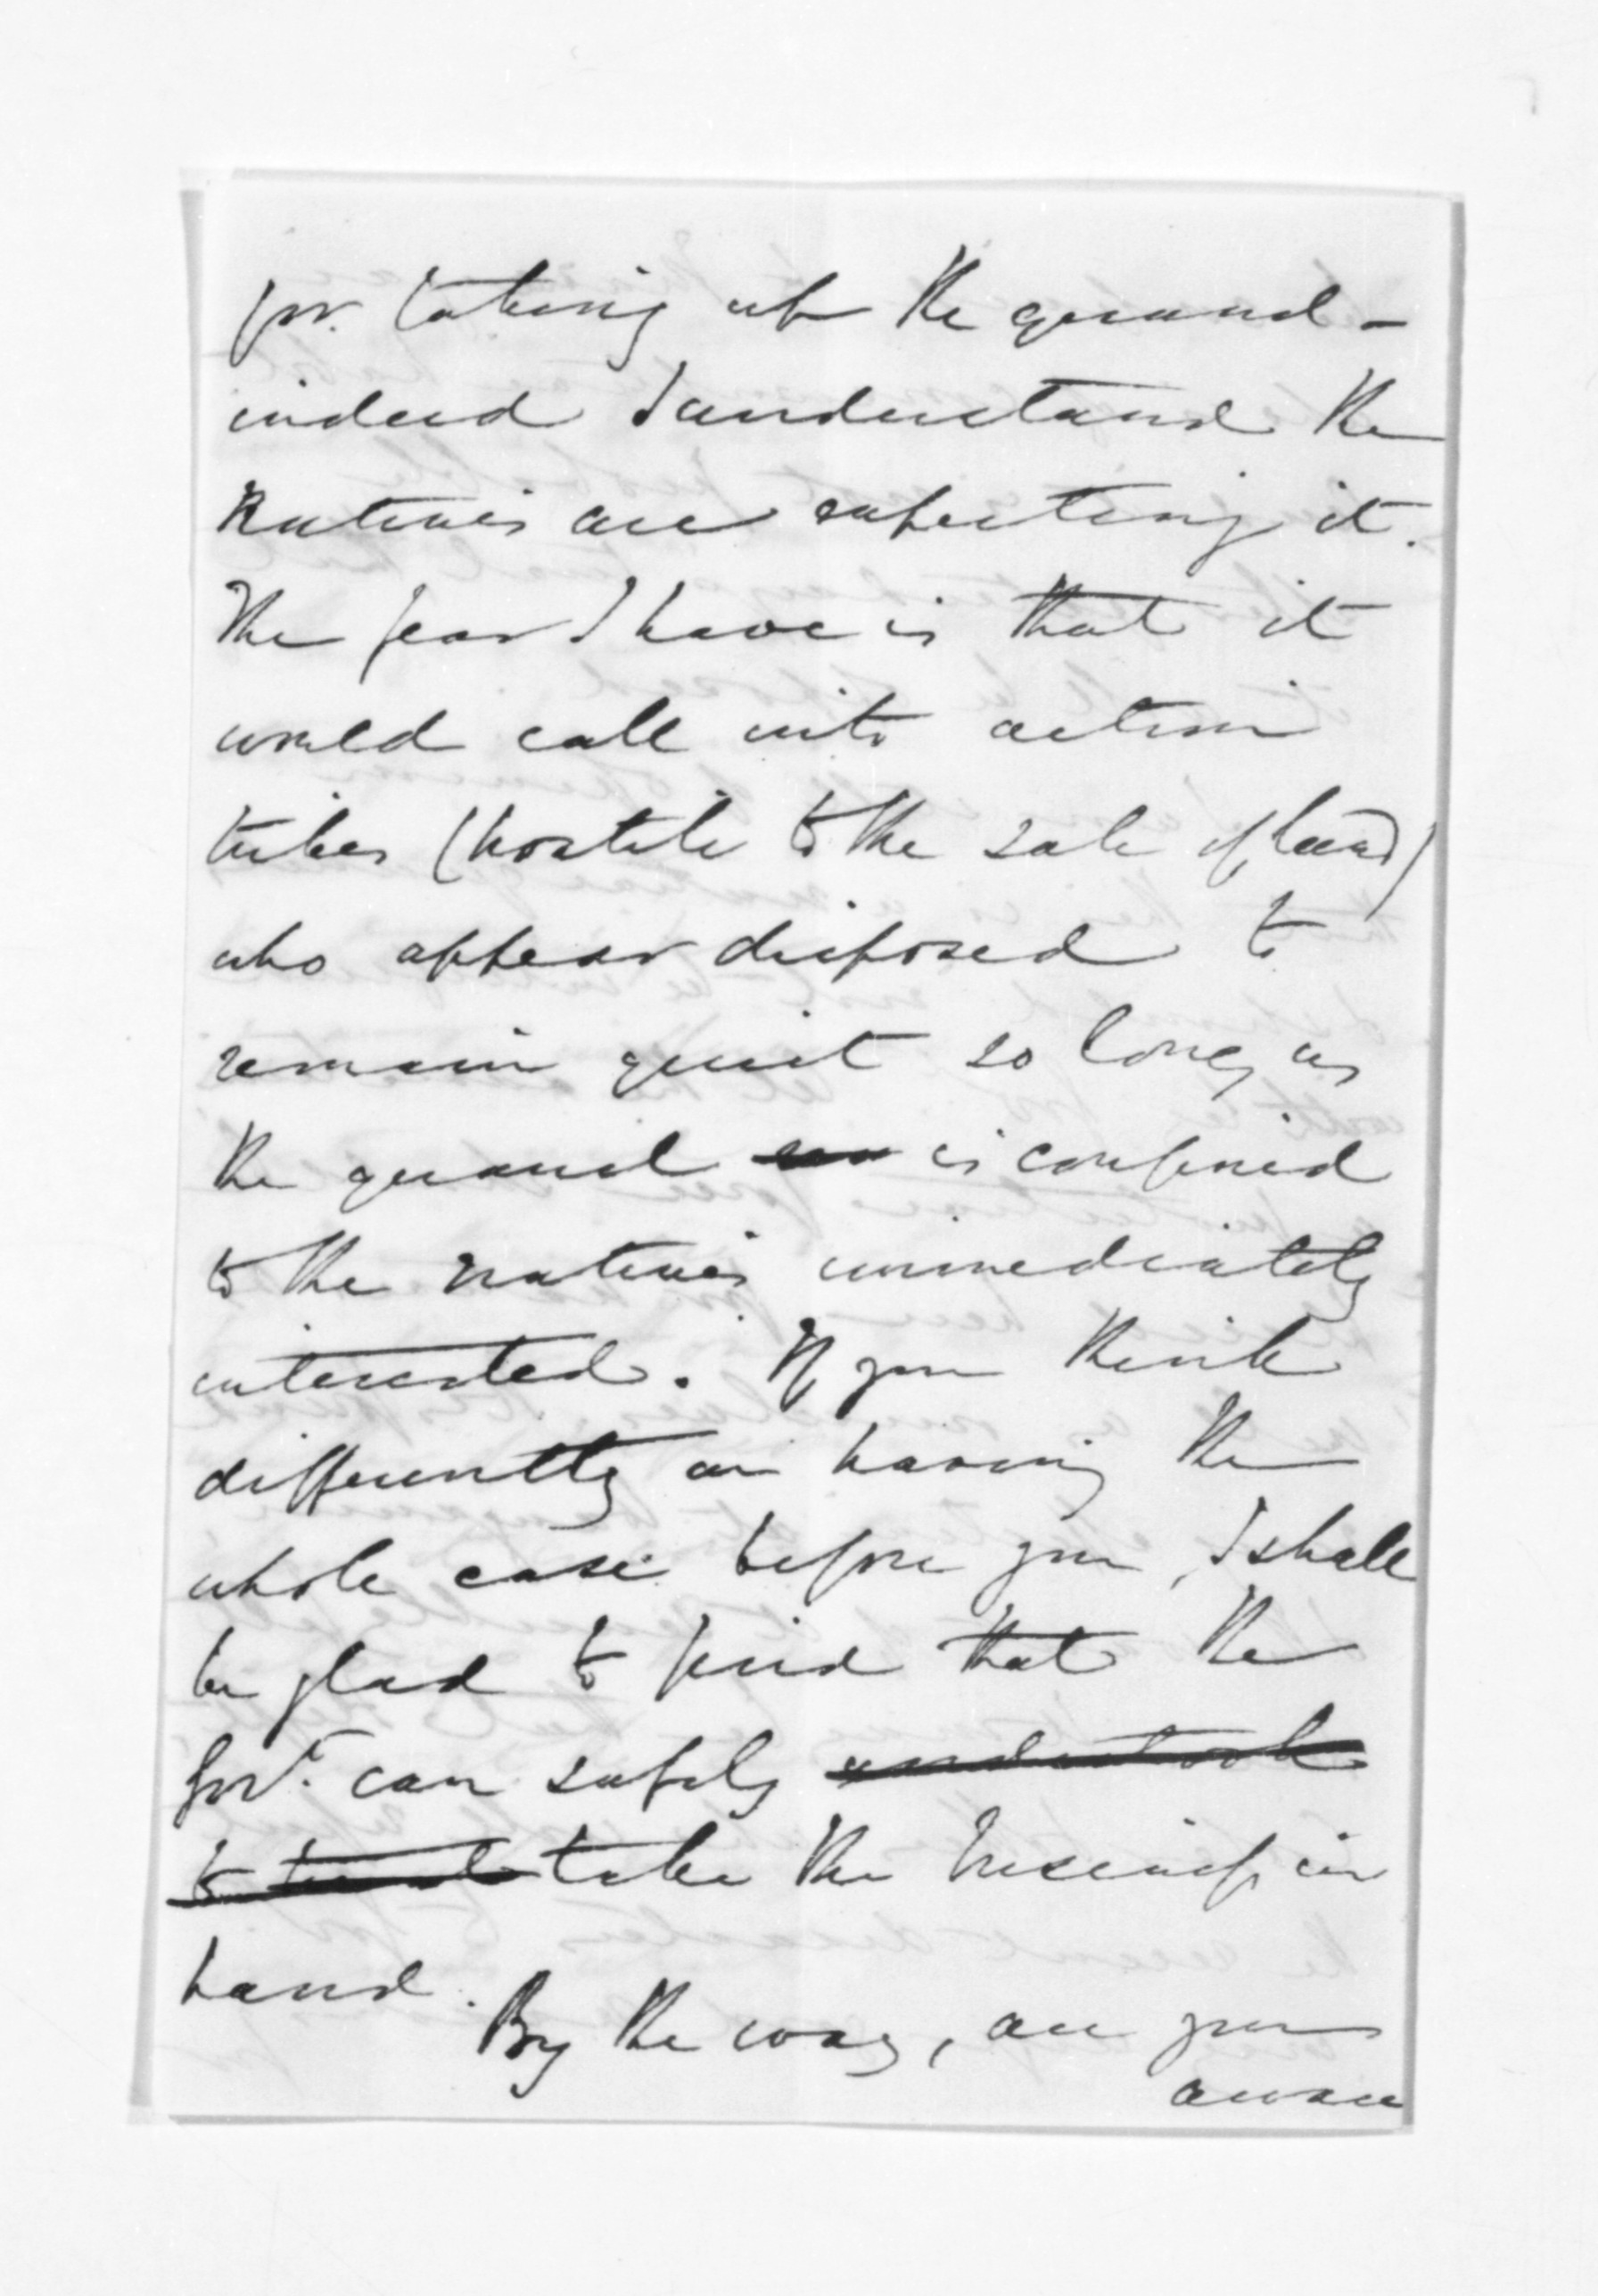 for taking up the quarrel -
indeed I understand the
Natives are expecting it.
The fear I have is that it
would call into action
tribes (hostile to the sale of land)
who appear disposed to
remain quiet so long as
the quarrel is confined
to the natives immediately
interested. If you think
differently on having the
whole case before you, I shall
be glad to find that the
Govt. can safely undertook
to take the business in
hand.
By the way, are you
aware